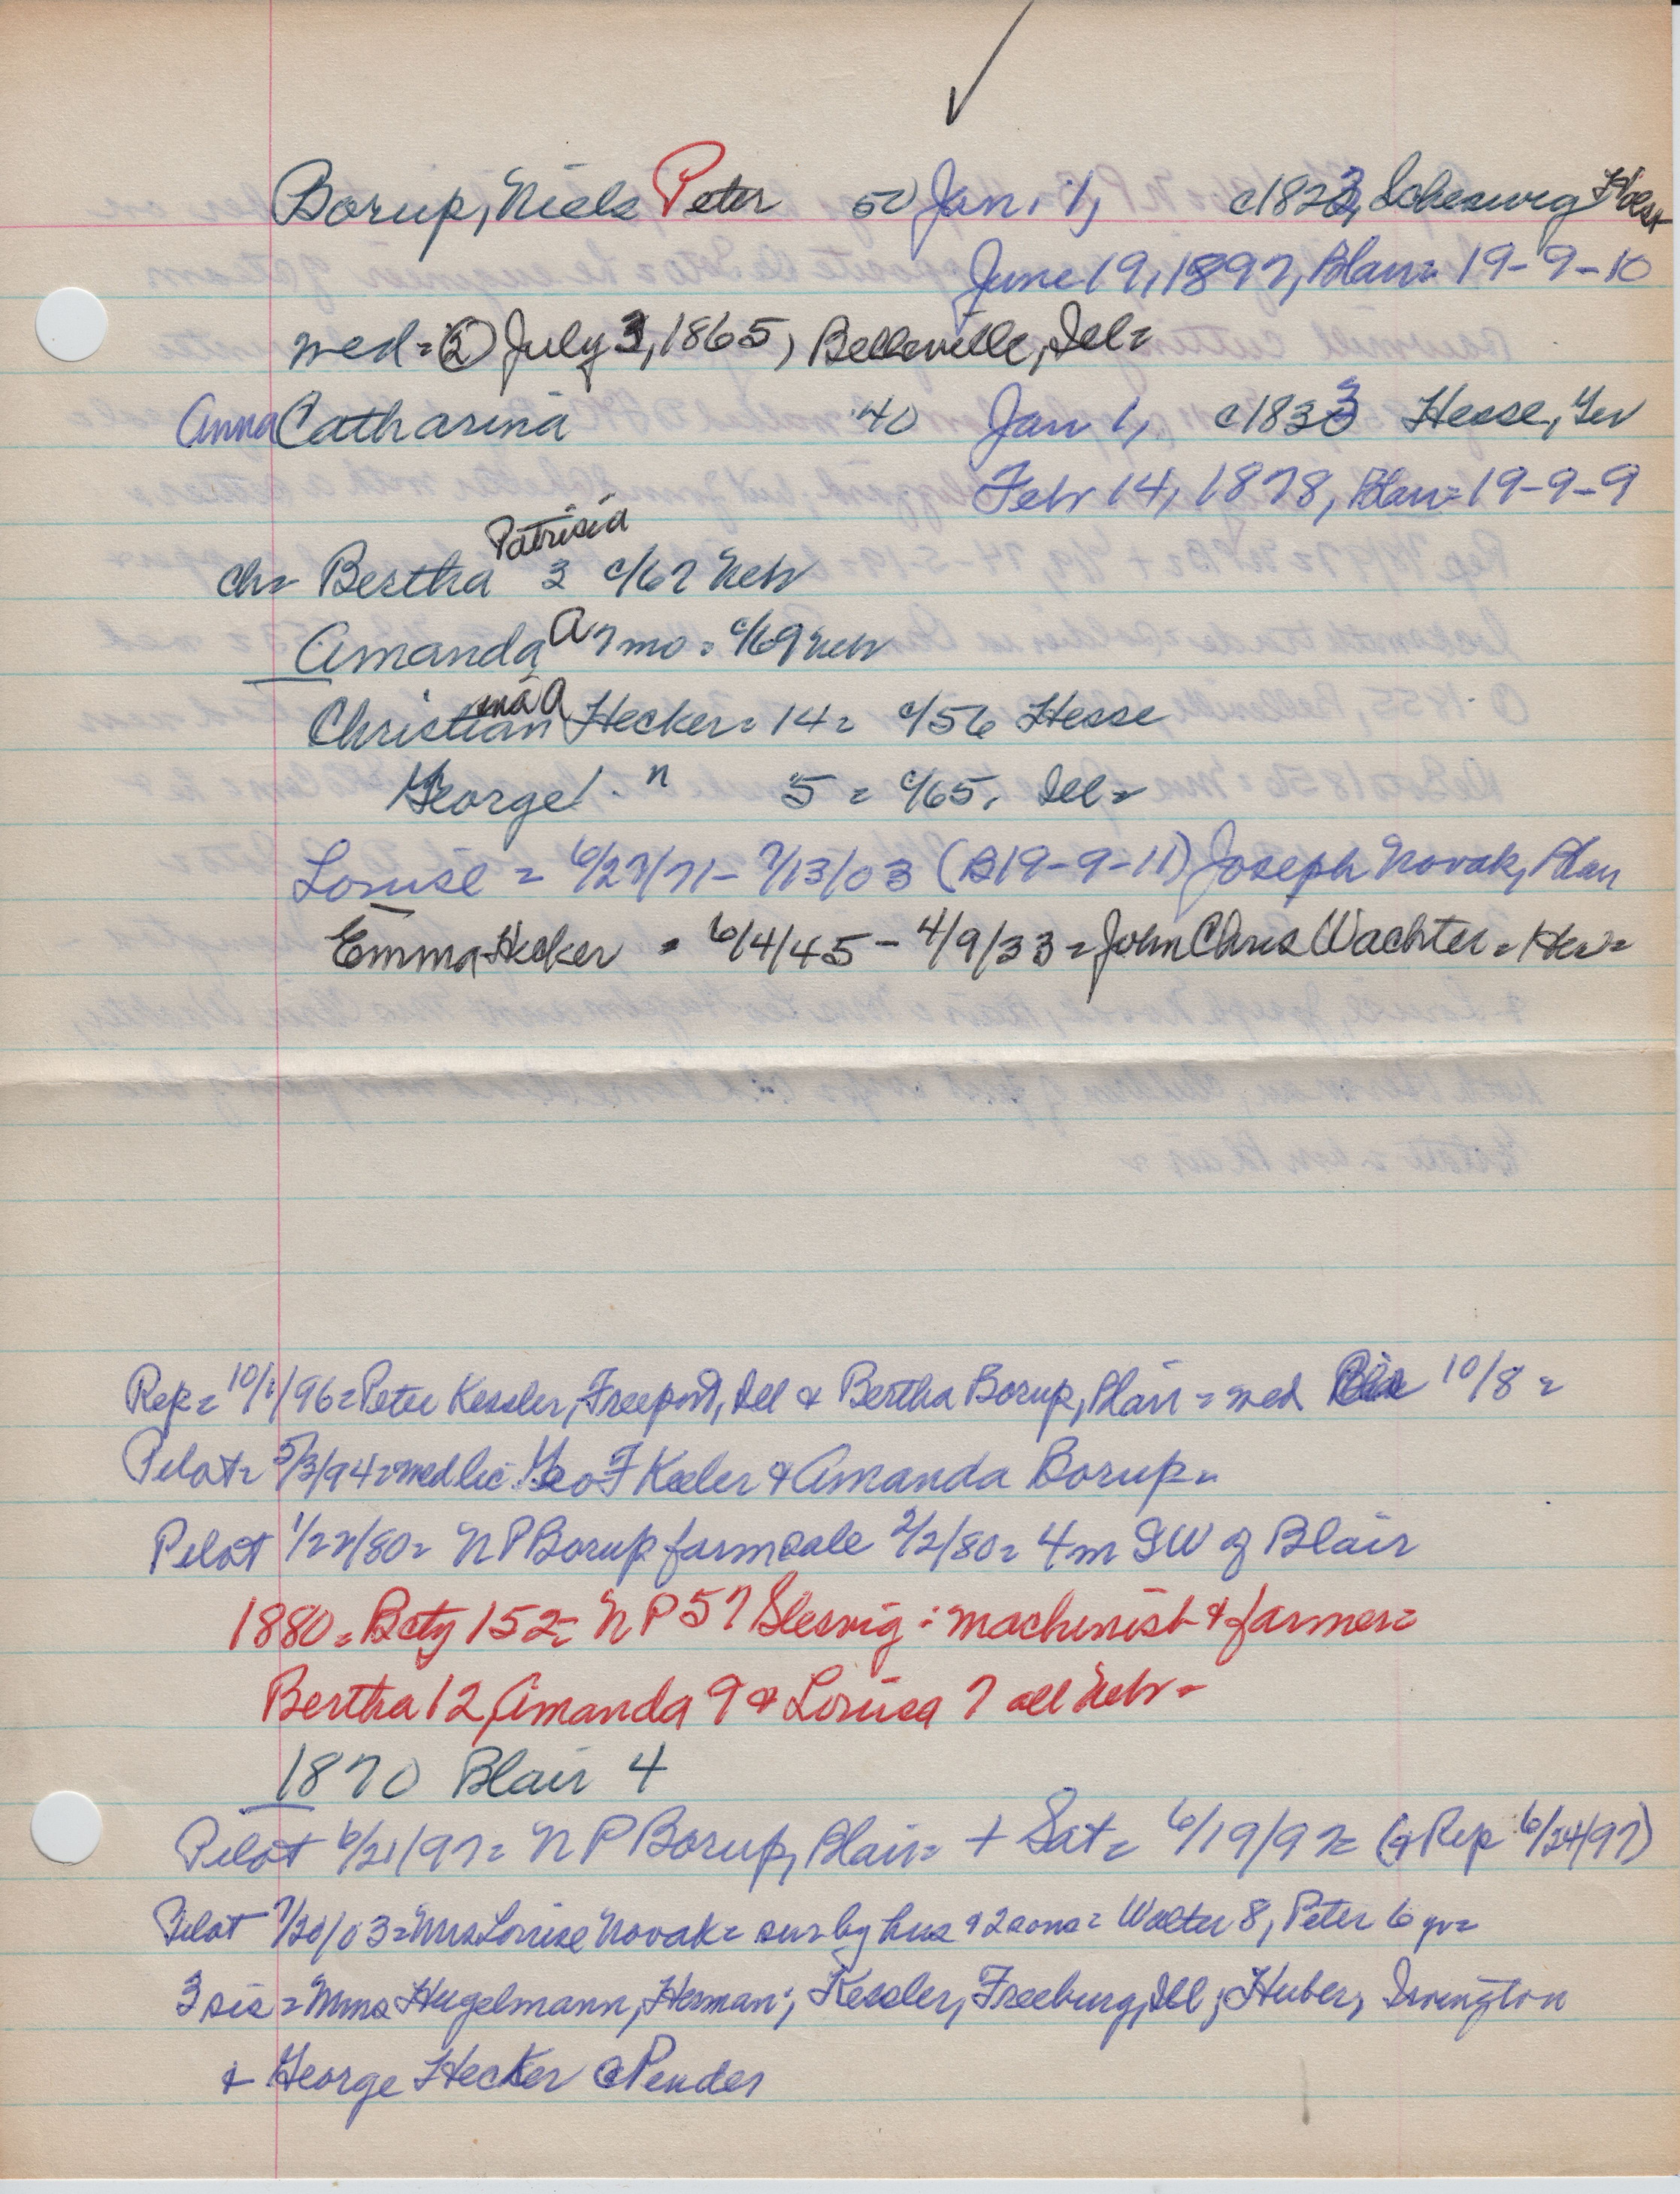 Borup, Niels Peter 50 Jan. 1, c1823, Scheswig Holst
June 19, 1897, Blair= 19-9-10
med= ② July 3, 1865, Belleville, Ill=
Anna Catharina 40 Jan 1, c1833 Hesse, Ger
Febr 14, 1878, Blair= 19-9-9
Patrisia
ch= Bertha 3 c/67 Nebr
Amanda A 7 mo= c/69 Nebr
na A
Christian Hecker= 14= c/56 Hesse
George " 5= c/65. Ill=
Louise = 6/27/71- 7/13/03 (B19-9-11) Joseph Novak, Blair
Emma Hecker = 6/4/45- 4/9/33= John Chris Wachter=
Rep= 10/ /96= Peter Kessler, Freeport, Ill & Bertha Borup, Blair= med 10/8=
Pilot= 5/3/94= med lic. Geo F Keeler & Amanda Borup=
Pilot 1/22/80= N P Borup farm sale 2/2/80= 4 m SW of Blair
1880= Bcty 152= N P 57 Slesvig: machinist & farmer=
Bertha 12, Amanda 9 & Louisa 7 all Nebr=
1870 Blair 4
Pilot 6/21/97= N P Borup, Blair= + Sat= 6/19/97= (& Rep 6/24/97)
Pilot 7/20/03= Mrs Louise Novak= sur by hus & 2 sons= Walter 8, Peter 6 yr=
3 sis= Mmes Hugelmann, Herman; Kessler, Freeburg, Ill; Huber, Irvington
& George Hecker @ Pender